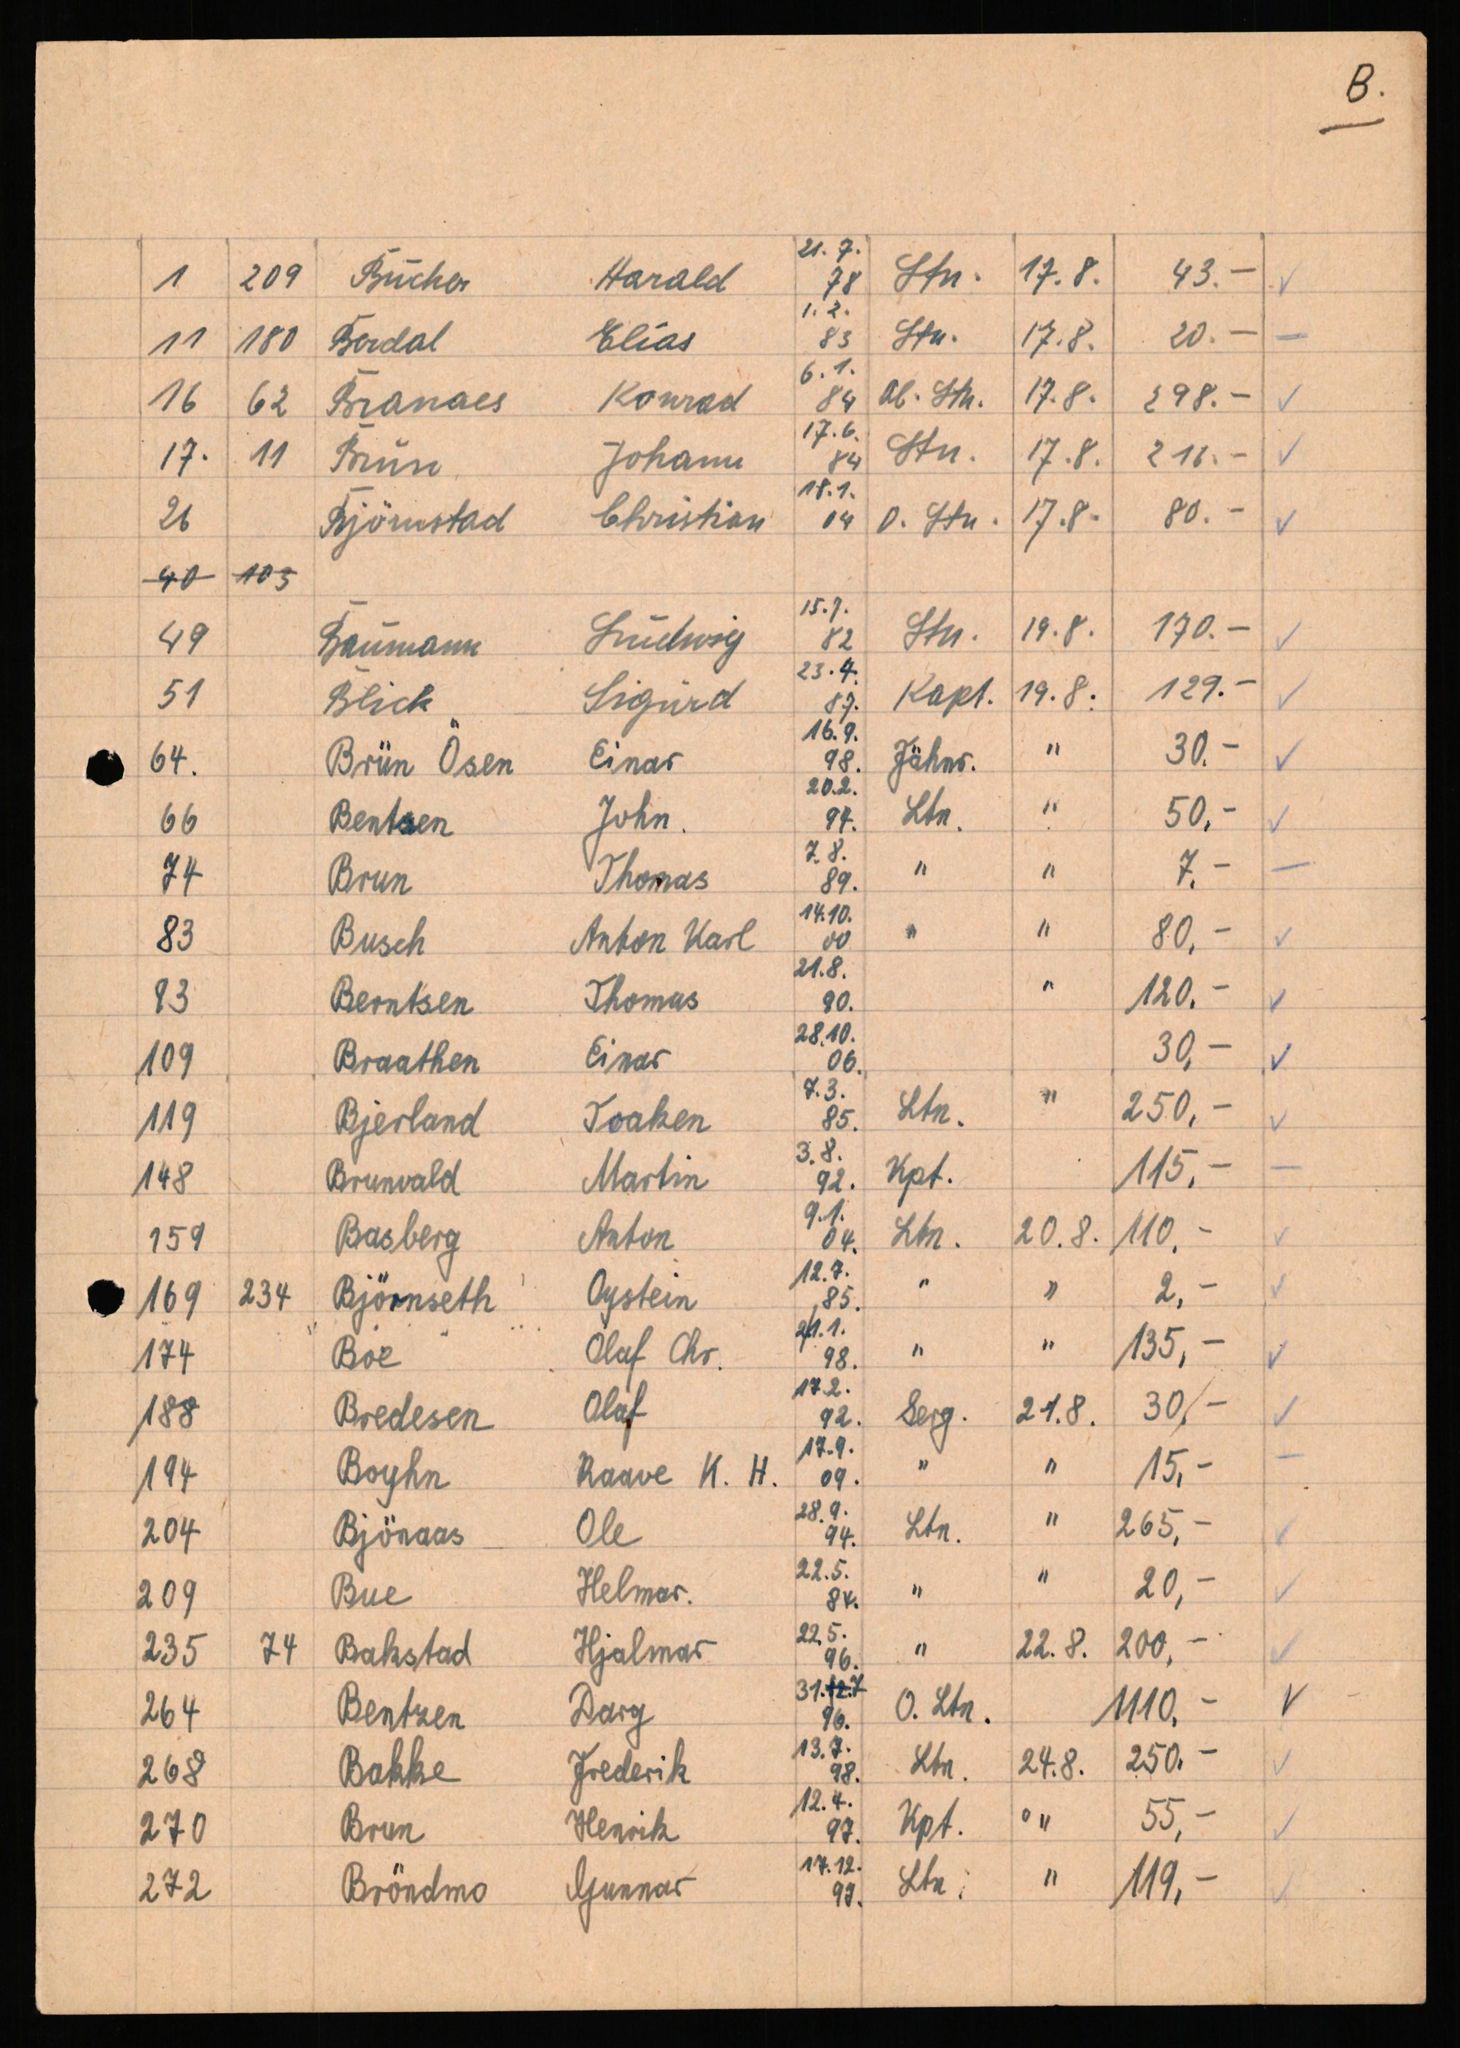 B.
1 209 Bucher Harald 21.7.78 Ltn. 17.8. 43.- ✓
11 180 Berdal Elias 1.2.83 Ltn. 17.8. 20.- -
16 62 Branaes Konrad 6.1.84 Ob. Ltn. 17.8. 298.- ✓
17. 11 Brun Johann 17.6.84 Ltn. 17.8. 216.- ✓
26 Björnstad Christian 18.1.04 O. Ltn. 17.8. 80.- ✓
40 103
49 Baumann Ludwig 15.7.82 Ltn. 19.8. 170.- ✓
51 Blick Sigurd 23.4.87. Kapt. 19.8. 129.- ✓
64. Brün Ösen Einar 16.9.98. Fähnr. " 30.- ✓
66 Bentsen John. 20.2.97. Ltn. " 50,- ✓
74 Brun Thomas 7.8.89. " " 7.- -
83 Busch Anton Karl 14.10.00 " " 80,- ✓
93 Berntsen Thomas 21.8.90. " 120.- ✓
109 Braathen Einar 28.10.06. 30,- ✓
119 Bjerland Toaken 7.3.85. Ltn. " 250,- ✓
148 Brunvald Martin 3.8.92. Kpt. 115,- -
159 Basberg Anton 9.1.04. Ltn. 20.8. 110,- ✓
169 234 Björnseth Oystein 12.7.85. " " 2,- ✓
174 Böe Olaf Chr. 21.1.98. " " 135,- ✓
188 Bredesen Olaf 17.2.92. Serg. 21.8. 30,- ✓
194 Boyhn Raave K. H. 17.9.09. " " 15,- -
204 Bjönaas Ole 28.9.94. Ltn. " 265,- ✓
209 Bue Helmar. 22.5.84. " " 20,- ✓
235 74 Bakstad Hjalmar 22.5.96. " 22.8. 200,- ✓
264 Bentzen Darg 31.12.7 96. O. Ltn. 1110,- ✓ -
268 Bakke Frederik 13.7.98. Ltn. 24.8. 250.- ✓
270 Brun Henrik 12.4.97. Kpt. " 55,- ✓
272 Bröndmo Gunnar 17.12.97. Ltn. " 119,- ✓